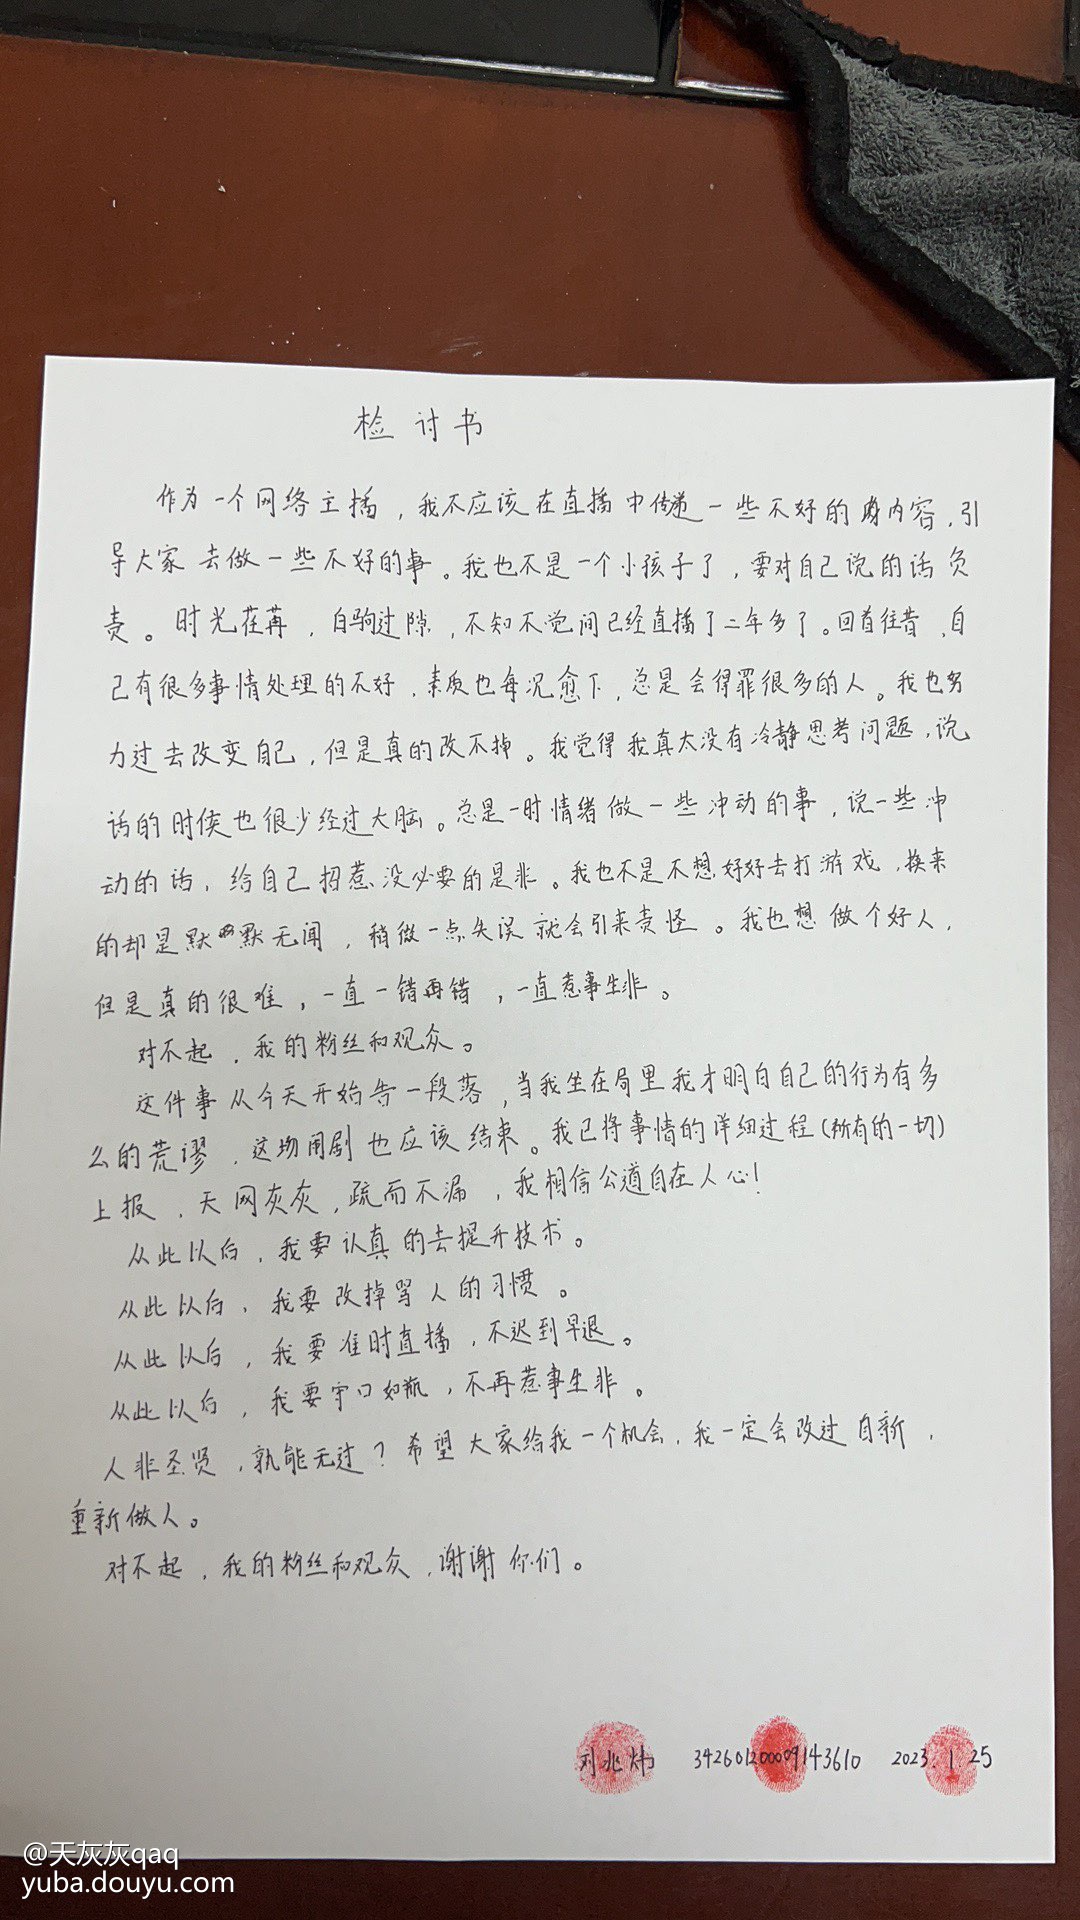 检讨书
作为一个网络主播，我不应该在直播中传递一些不好的内容，引
导大家去做一些不好的事。我也不是一个小孩子了，要对自己说的话负
责。时光荏苒，白驹过隙，不知不觉间已经直播了二年多了。回首往昔，自
己有很多事情处理的不好，素质也每况愈下，总是会得罪很多的人。我也努
力过去改变自己，但是真的改不掉。我觉得我真太没有冷静思考问题，说
话的时侯也很少经过大脑。总是一时情绪做一些冲动的事，说一些冲
动的话，给自己招惹没必要的是非。我也不是不想好好去打游戏，换来
的却是默默无闻，稍做一点失误就会引来责怪。我也想做个好人，
但是真的很难，一直一错再错，一直惹事生非。
对不起，我的粉丝和观众。
这件事从今天开始告一段落，当我坐在局里我才明白自己的行为有多
么的荒谬，这场闹剧也应该结束。我已将事情的详细过程(所有的一切)
上报，天网灰灰，疏而不漏，我相信公道自在人心！
从此以后，我要认真的去提升技术。
从此以后，我要改掉骂人的习惯。
从此以后，我要准时直播，不迟到早退。
从此以后，我要守口如瓶，不再惹事生非。
人非圣贤，孰能无过？希望大家给我一个机会，我一定会改过自新，
重新做人。
对不起，我的粉丝和观众，谢谢你们。
刘兆炜 342601200009143610 2023.1.25
@天灰灰qaq
yuba.douyu.com